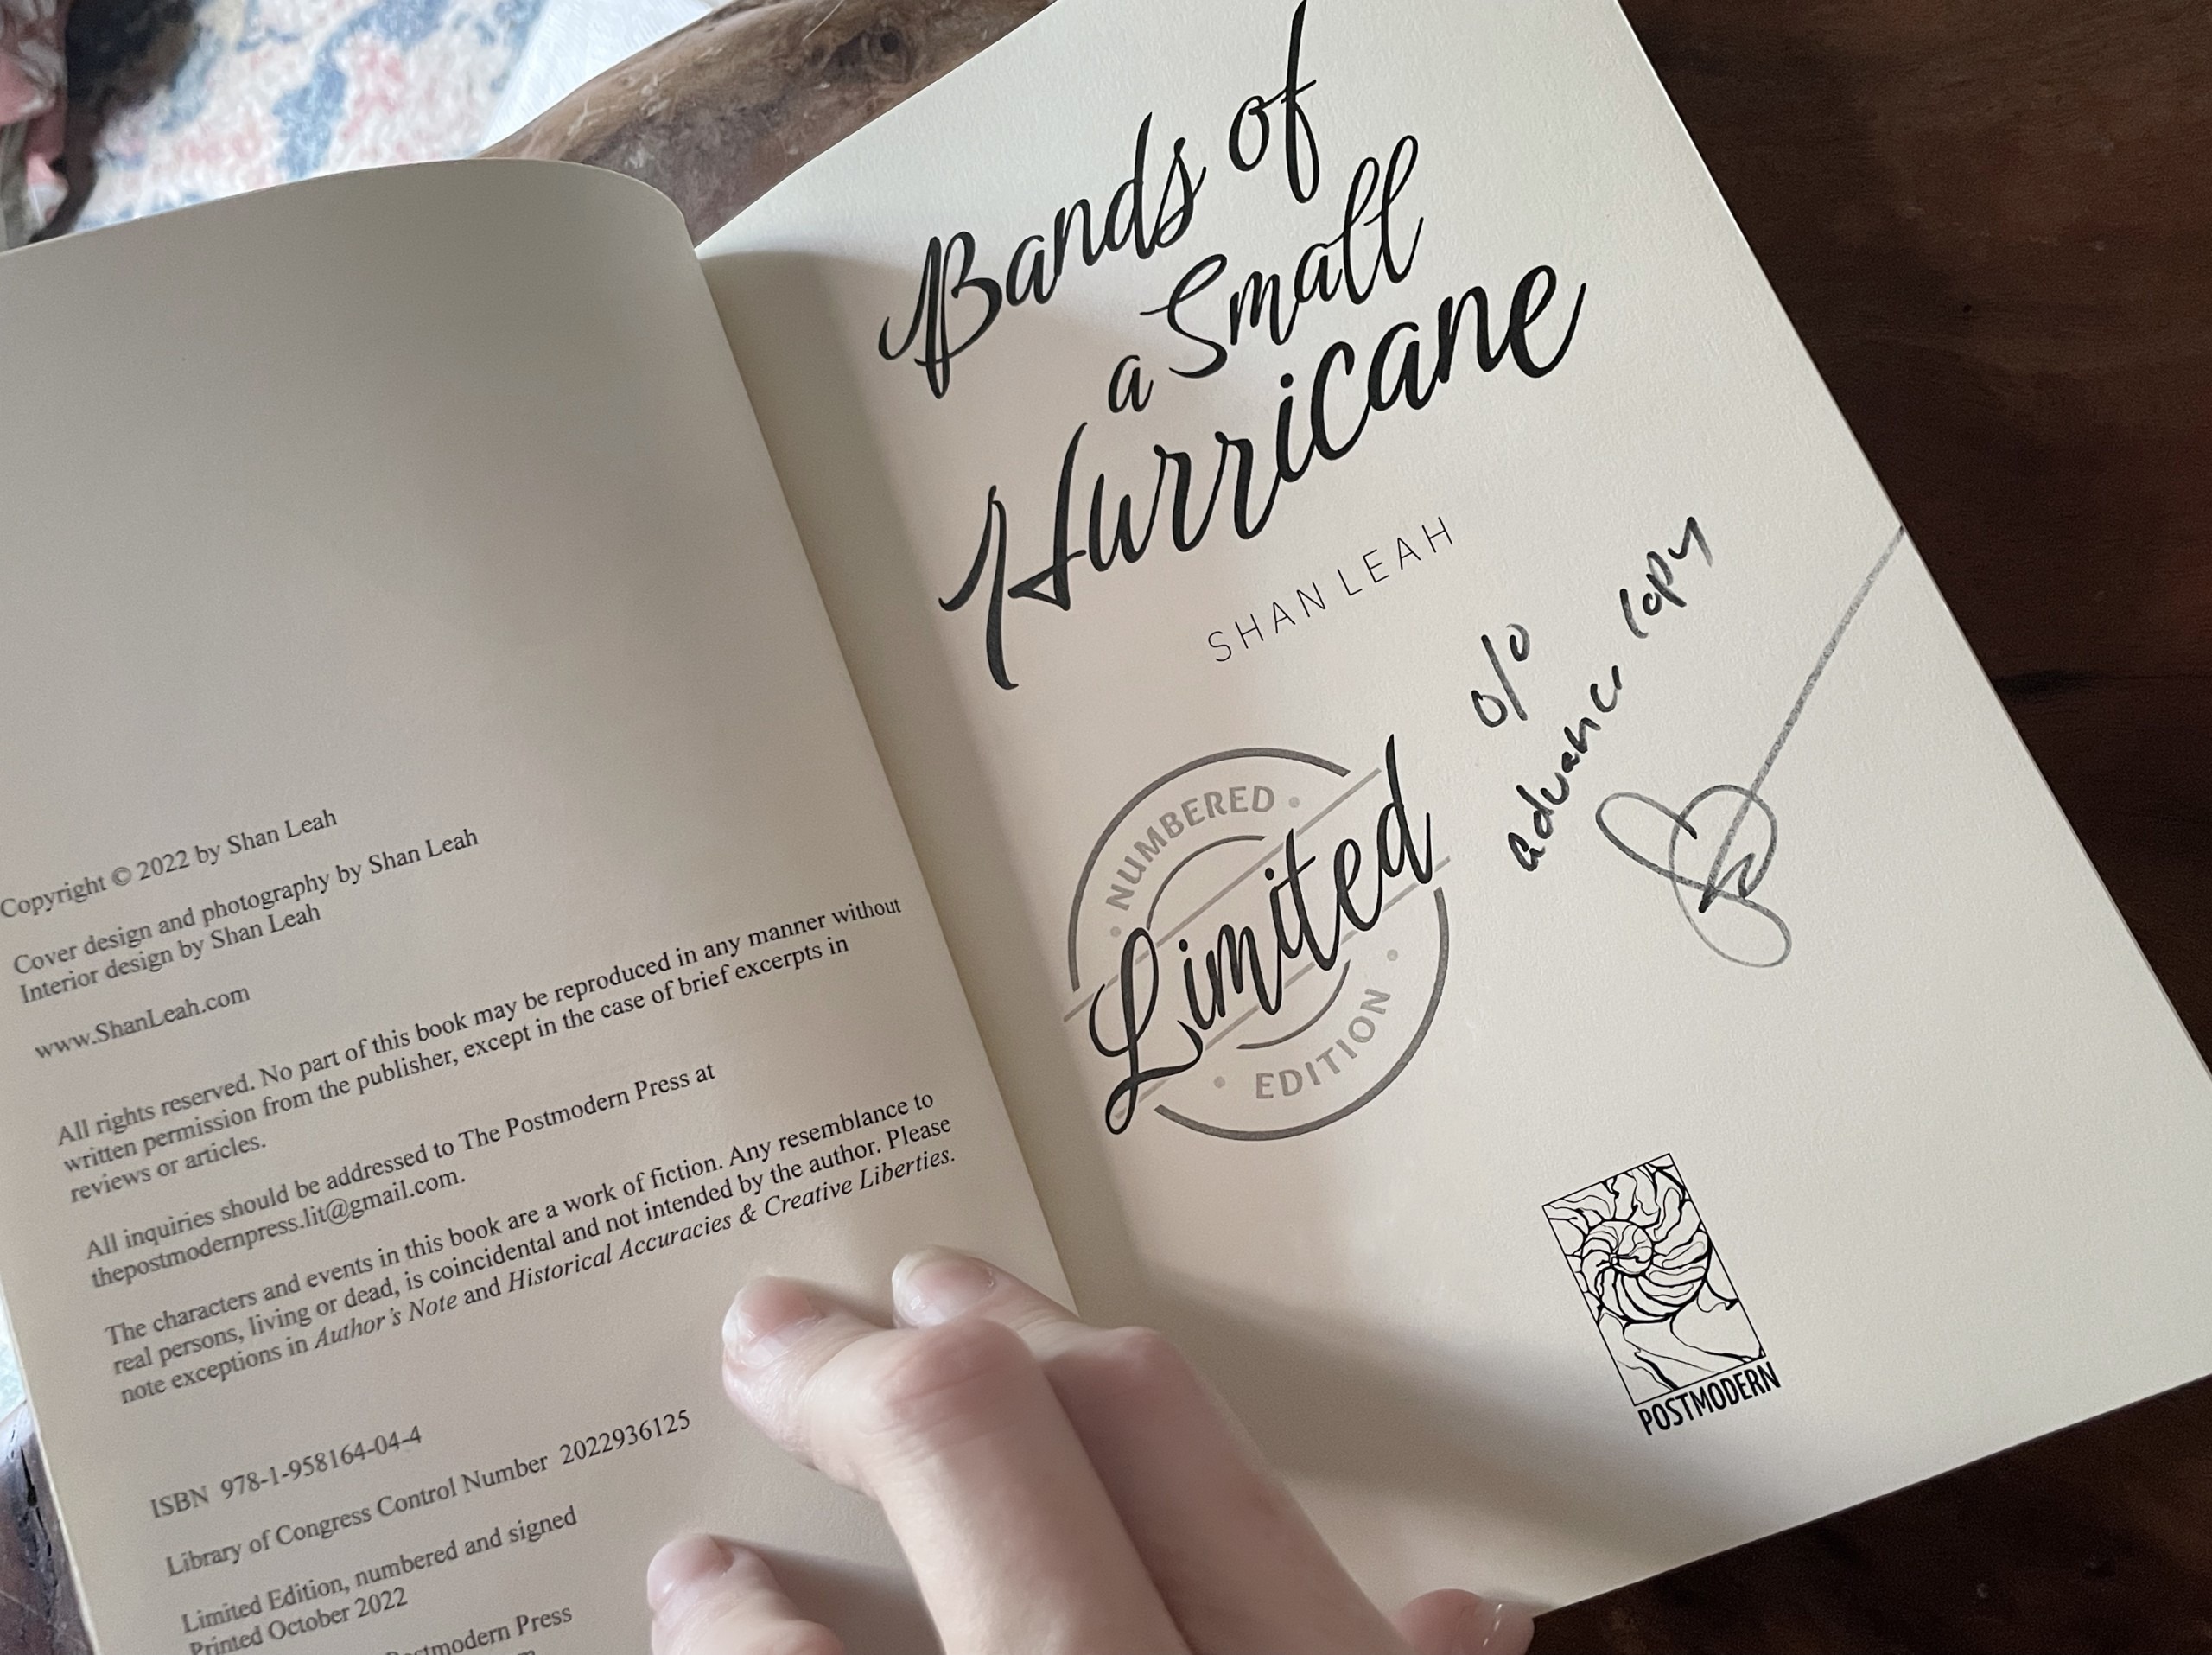 Copyright © 2022 by Shan Leah
Cover design and photography by Shan Leah
Interior design by Shan Leah
www.ShanLeah.com
All rights reserved. No part of this book may be reproduced in any manner without
written permission from the publisher, except in the case of brief excerpts in
reviews or articles.
All inquiries should be addressed to The Postmodern Press at
thepostmodernpress.lit@gmail.com.
The characters and events in this book are a work of fiction. Any resemblance to
real persons, living or dead, is coincidental and not intended by the author. Please
note exceptions in Author's Note and Historical Accuracies & Creative Liberties.
ISBN 978-1-958164-04-4
Library of Congress Control Number 2022936125
Limited Edition, numbered and signed
Printed October 2022
Postmodern Press
Bands of
a Small
Hurricane
SHAN LEAH
0/0
advance copy
NUMBERED
Limited
EDITION
POSTMODERN